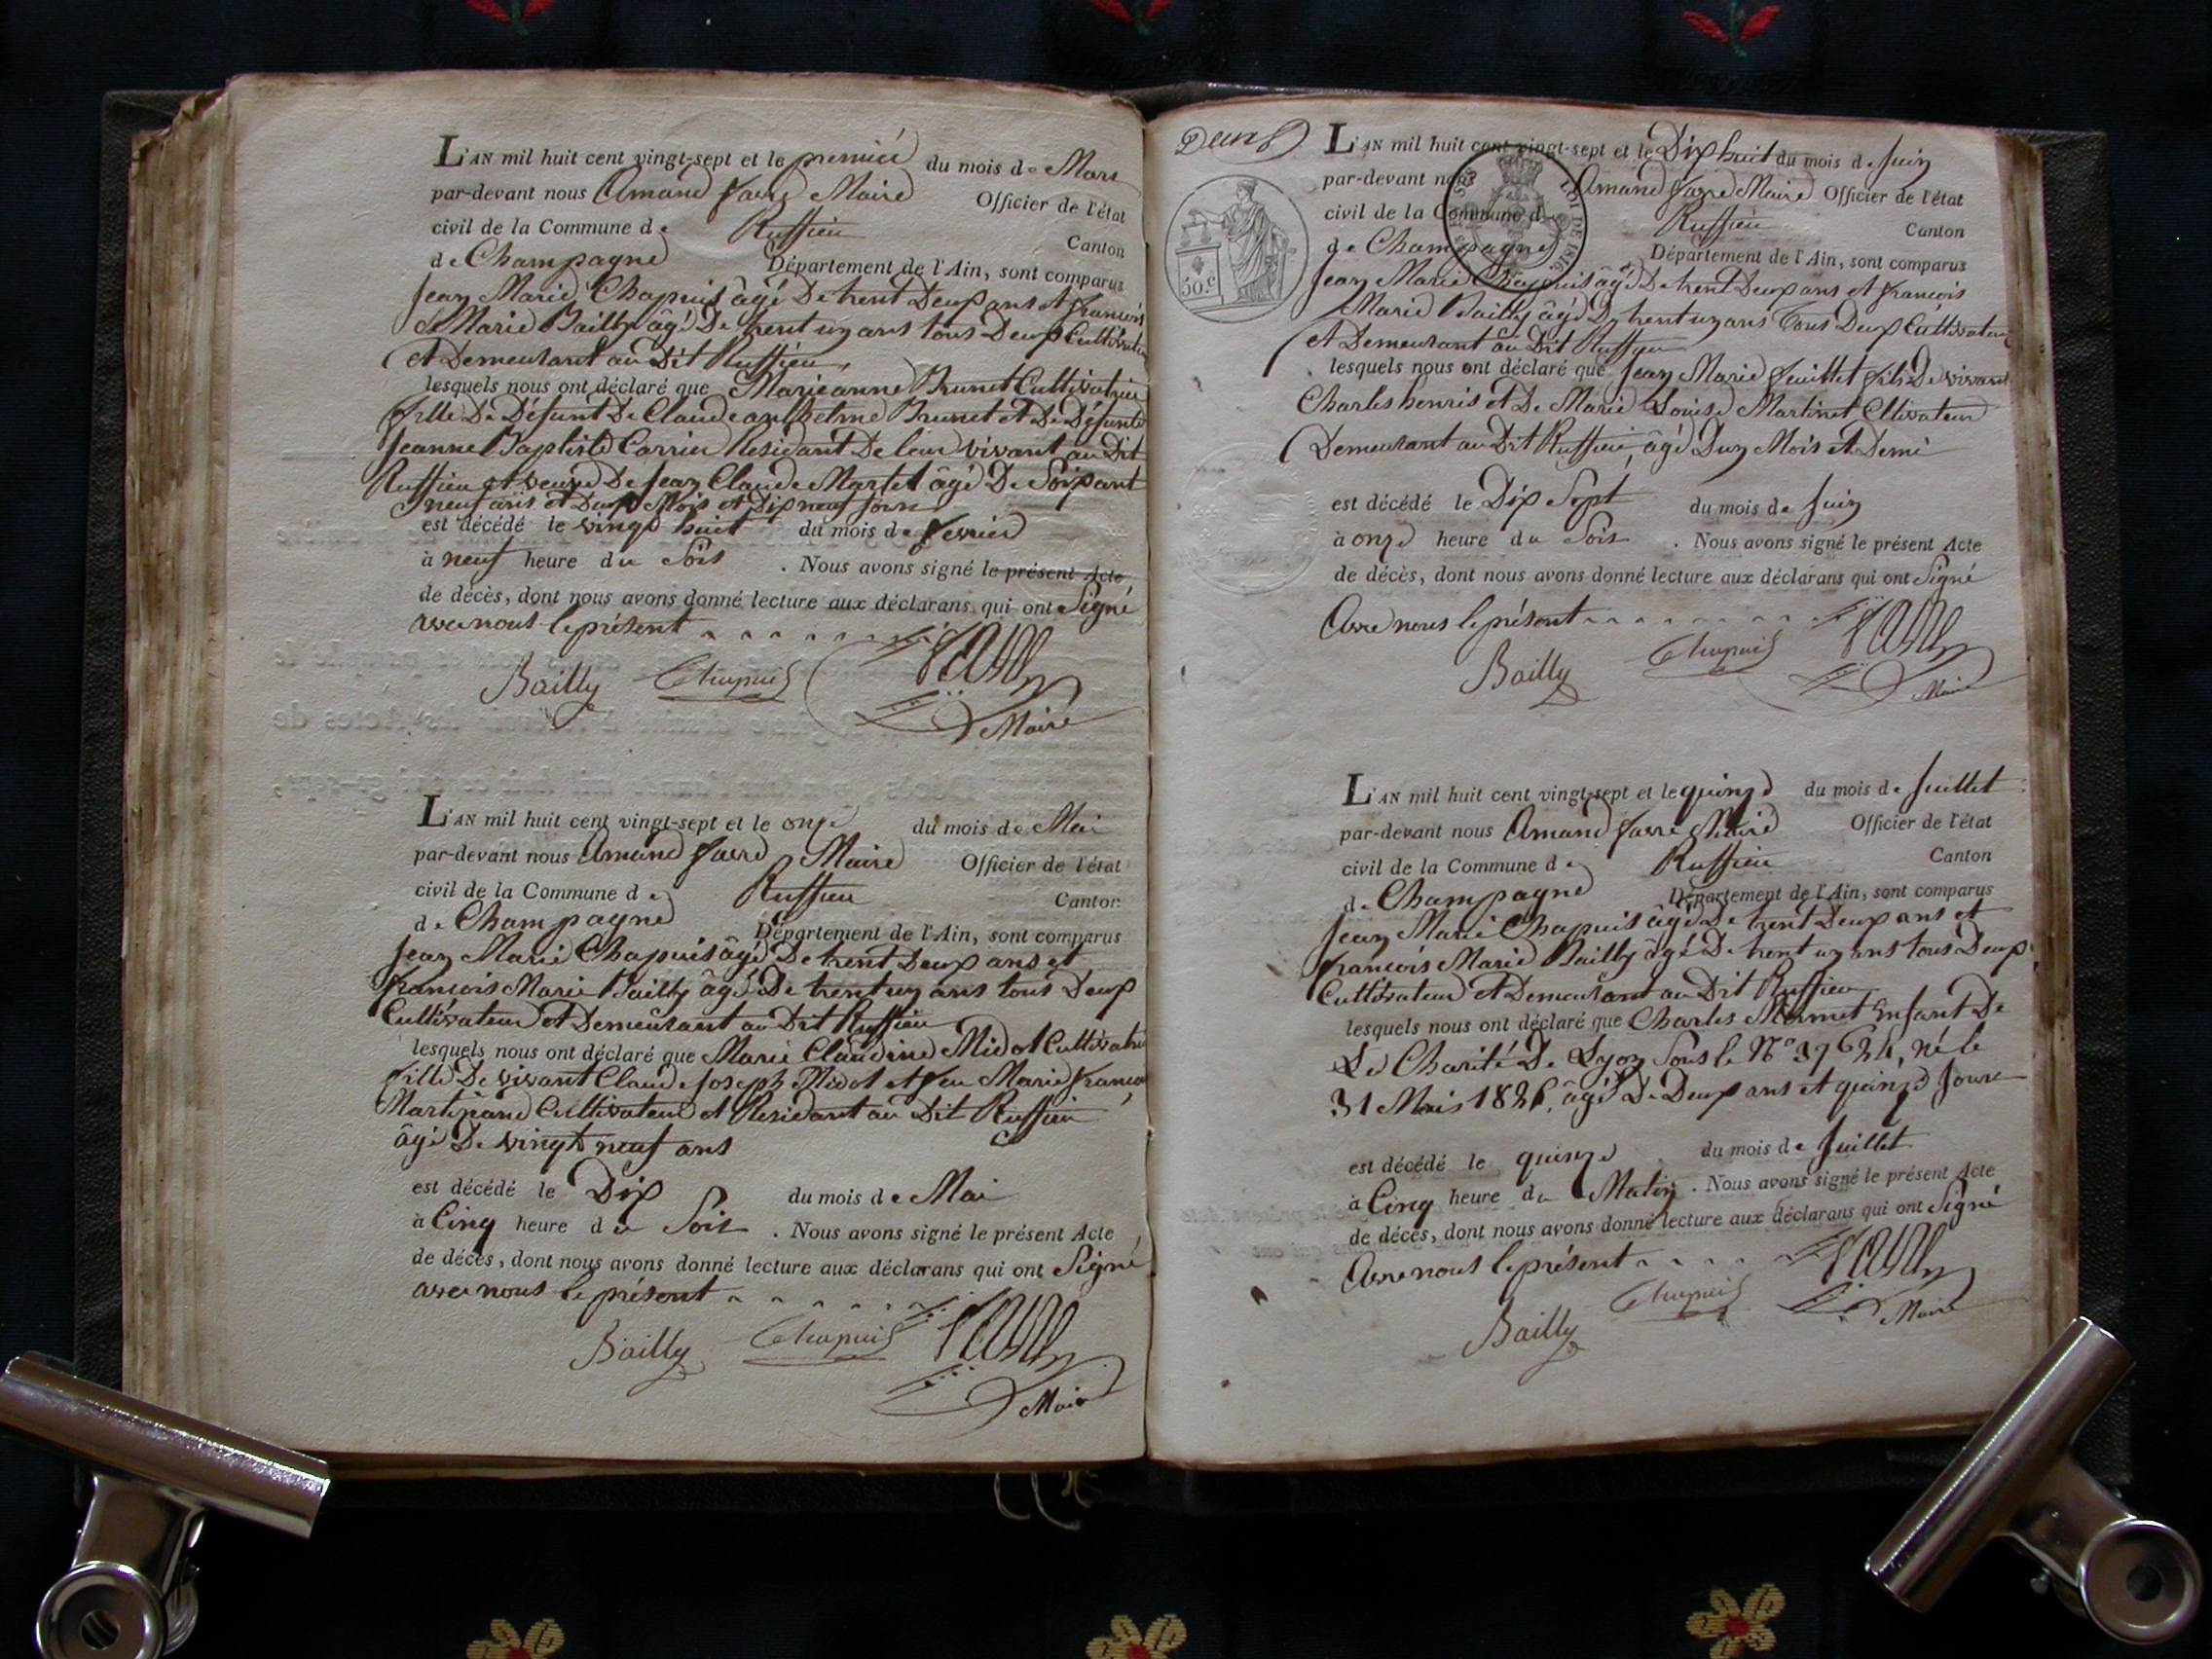 L'AN mil huit cent vingt-sept et le premier du mois de Mars
par-devant nous Amand favre Maire Officier de l'état
civil de la Commune de Ruffieu Canton
de Champagne Département de l'Ain, sont comparus
Jean Marie Chapuis âgé De trent Deux ans et francois
Marie Bailly âgé De trent un ans tous Deux Cultivateur
et Demeurant au Dit Ruffieu
lesquels nous ont déclaré que Marieanne Brunet Cultivatrice
fille De Défunt De Claude anthelme Brunet et De Défunte
Jeanne Baptiste Carrier Residant De leur vivant au Dit
Ruffieu et veuve De Jean Claude Martel âgé De Soixant
neuf ans et Deux Mois et Dix neuf Jours
est décédé le vingt huit du mois de fevrier
à neuf heure du Soir . Nous avons signé le présent Acte
de décès, dont nous avons donné lecture aux déclarans qui ont Signé
avec nous le présent
Bailly Chapuis favre
Maire
L'AN mil huit cent vingt-sept et le onze du mois de Mai
par-devant nous Amand favre Maire Officier de l'état
civil de la Commune de Ruffieu Canton
de Champagne Département de l'Ain, sont comparus
Jean Marie Chapuis âgé De trent Deux ans et
francois Marie Bailly âgé De trent un ans tous Deux
Cultivateur et Demeurant au Dit Ruffieu
lesquels nous ont déclaré que Marie Claudine Midol Cultivatrice
fille De vivant Claude Joseph Midol et feu Marie
Cultivateur et Residant au Dit Ruffieu
âgé De vingt neuf ans
est décédé le Dix du mois de Mai
à Cinq heure du Soir . Nous avons signé le présent Acte
de décès, dont nous avons donné lecture aux déclarans qui ont Signé
avec nous le présent
Bailly Chapuis favre
Maire
Deux
L'AN mil huit cent vingt-sept et le Dix huit du mois de Juin
par-devant nous Amand favre Maire Officier de l'état
civil de la Commune de Ruffieu Canton
de Champagne Département de l'Ain, sont comparus
LOI DE 1816
50.c
Jean Marie Chapuis âgé De trent Deux ans et francois
Marie Bailly âgé De trent un ans Tous Deux Cultivateur
et Demeurant au Dit Ruffieu
lesquels nous ont déclaré que Jean Marie feuillet fils De vivant
Charles henris et De Marie Louise Martinet Cltivateur
Demeurant au Dit Ruffieu, âgé Dun Mois et Demi
est décédé le Dix Sept du mois de Juin
à onze heure du Soir . Nous avons signé le présent Acte
de décès, dont nous avons donné lecture aux déclarans qui ont Signé
Avec nous le présent
Bailly Chapuis favre
Maire
L'AN mil huit cent vingt-sept et le quinze du mois de Juillet
par-devant nous Amand favre Maire Officier de l'état
civil de la Commune de Ruffieu Canton
de Champagne Département de l'Ain, sont comparus
Jean Marie Chapuis âgé De trent Deux ans et
francois Marie Bailly âgé De trent un ans tous Deux
Cultivateur et Demeurant au Dit Ruffieu
lesquels nous ont déclaré que Charles Mermet Enfant De
La Charité De Lyon Sous le N°, né le
31 Mais âgé De Deux ans et quinze Jours
est décédé le quinze du mois de Juillet
à Cinq heure du Matin . Nous avons signé le présent Acte
de décès, dont nous avons donné lecture aux déclarans qui ont Signé
Avec nous le présent
Bailly Chapuis favre
Maire